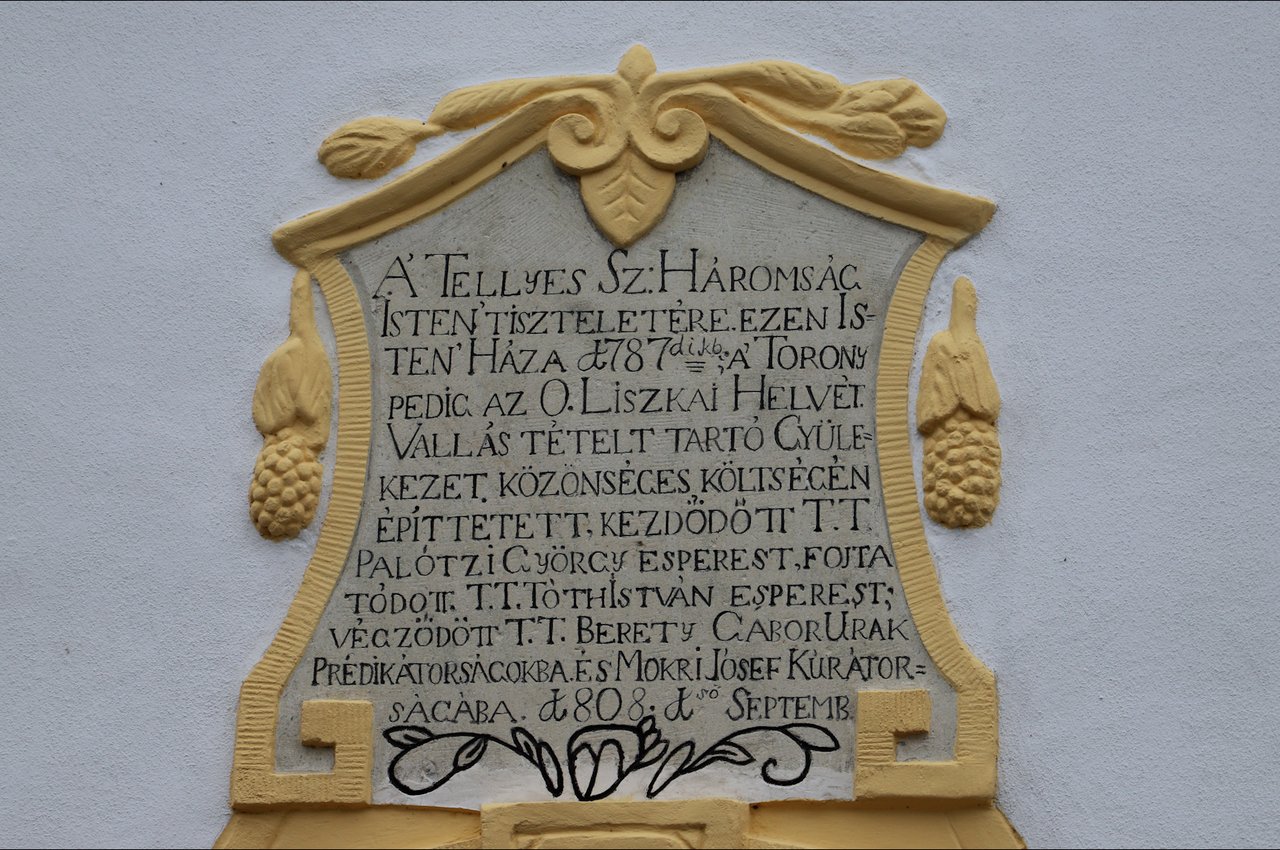 A' TELLYES SZ: HÁROMSÁG
ISTEN' TISZTELETÉRE. EZEN IS=
TEN' HÁZA 1787dikb.; A' TORONY
PEDIG AZ O. LISZKAI HELVÉT.
VALLÁS TÉTELT TARTÓ GYÜLE=
KEZET KÖZÖNSÉGES KÖLTSÉGÉN
ÉPÍTTETETT, KEZDŐDÖTT T.T.
PALÓTZI GYÖRGY ESPEREST, FOJTA
TÓDOTT. T.T. TÒTH ISTVÀN ESPEREST;
VÉGZŐDÖTT T.T. BERETY GÁBOR URAK
PRÉDIKÁTORSÁGOKBA. ÉS MOKRI JÓSEF KURÁTOR=
SÀGÀBA. 1808. 1ső SEPTEMB.